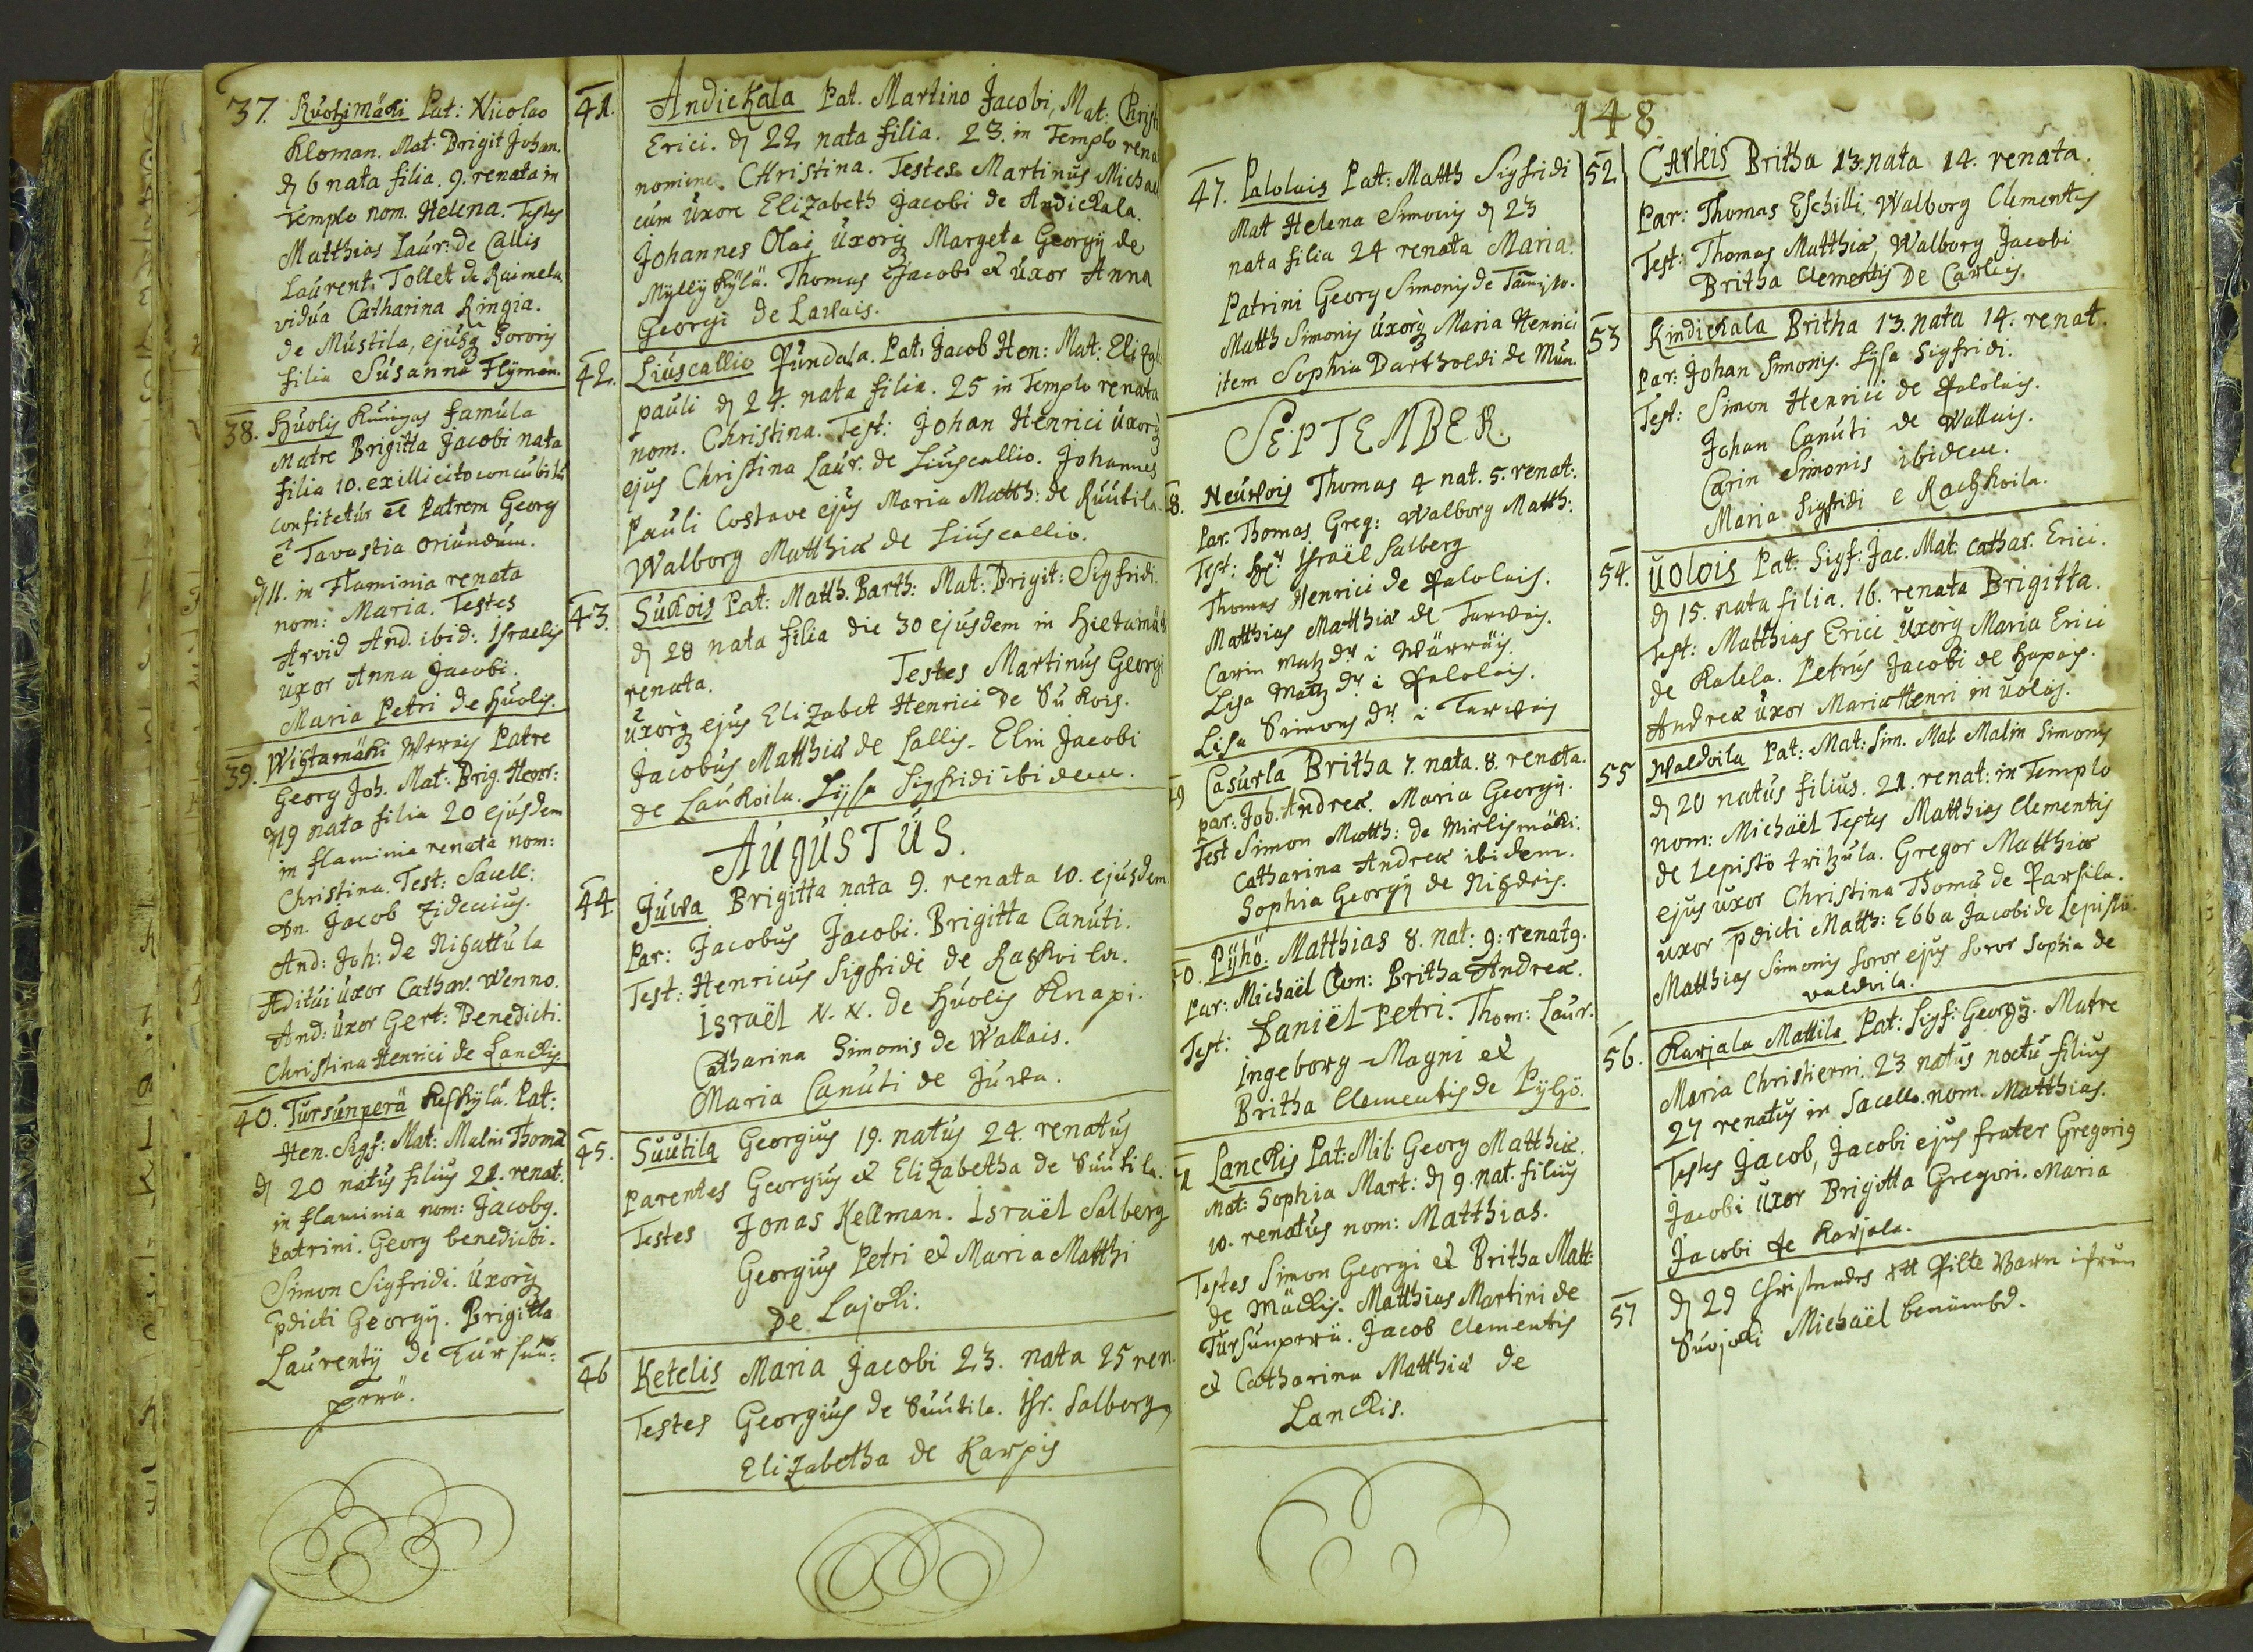 37. Ruohimäki Pat: Nicolao
Kloman. Mat: Brigit Johan.
d 6 nata filia. 9. renata in
Templo nom. Helena. Testes
Matthias Laur: de Callis
Laurent. Tollet de Raimela
vidua Catharina Ringia.
de Mustila, ejusq Sororis
filia Susanna Flyman.
38. Huolis Kuingas famula
Matre Brigitta Jacobi nata
filia 10. ex illicito concubitu
confitetur ee Patrem Georg
e Tavastia oriundum.
d 11. in Flaminia renata
nom: Maria. Testes
Arvid And. ibid: Israelis
uxor Anna Jacobi.
Maria Petri de Huolis.
39. Wihtamäki Patre
Georg Joh. Mat: Brig. Henr:
d 19 nata filia 20 ejusdem
in flaminia renata nom:
Christina. Test: Sacell:
Dn. Jacob Zidenius.
And: Joh: de Nihattula
Æditui uxor Cathar. Wenno.
And: uxor Gert: Benedicti.
Christina Henrici de Lanckis
40. Tursunperä Keskylä. Pat:
Hen. Sigf: Mat: Malin Thomæ
d 20 natus filius 21. renat.
in flaminia nom: Jacobg.
Patrini. Georg benedicti.
Simon Sigfridi. Uxorq
pdicti Georgij. Brigitta
Laurentij de Tursun-
perä.
41. Andickala Pat. Martino Jacobi, Mat: Christ
Erici. d 22 nata filia. 23. in Templo rena
nomine. Christina. Testes Martinus Michae
cum uxore Elizabeth Jacobi de Andickala.
Johannes Olai Uxorq Margeta Georgij de
Myllykylä. Thomas Jacobi et uxor Anna
Georgi de Lavais.
42. Liuscallio Pundala. Pat: Jacob Hen: Mat: Elizab:
Pauli d 24. nata filia. 25 in Templo renata
nom. Christina. Test: Johan Henrici uxorq
ejus Christina Laur. de Liuscallio. Johannes
Pauli Costave ejus Maria Matth: de Ruutila.
Walborg Matthiæ de Liuscallio.
43. Sukois Pat: Matth. Barth: Mat: Brigit: Sigfridi.
d 28 nata filia die 30 ejusdem in Hietamäk
renata. Testes Martinus Georgi
uxorq ejus Elizabet Henrici de Sukois.
Jacobus Matthiæ de Callis. Elin Jacobi
de Laukoila. Lijsa Sigfridi ibidem.
AUGUSTUS.
44 Juva Brigitta nata 9. renata 10. ejusdem
Par: Jacobus Jacobi. Brigitta Canuti.
Test: Henricus Sigfridi de Rahkoila.
Israël N. N. de Huolis Knapi.
Catharina Simonis de Wallais.
Maria Canuti de Juva.
45. Suutila Georgius 19. natus 24. renatus
Parentes Georgius et Elizabetha de Suutila.
Testes Jonas Kellman. Israël Salberg
Georgius Petri et Maria Matthi
de Lajoki.
46 Ketelis Maria Jacobi 23. nata 25 ren.
Testes Georgius de Suutila. Isr. Salberg
Elizabetha de Karpis
148
47. Palolais Pat: Matth Sigfridi
Mat Helena Simonis d 23
nata filia 24 renata Maria.
Patrini Georg Simonis de
Matth Simonis uxorq Maria Henrici
item Sophia Bartholdi de Mun.
SEPTEMBER
8. Neuvois Thomas 4 nat. 5. renat.
Par. Thomas Greg: Walborg Matth:
Test: Hr Israël Salberg
Thomas Henrici de Palolais.
Matthias Matthiæ de Tarvais.
Carin Matz dr i Wärräis.
Lisa Matz dr i Palolais.
Lisa Simons dr i Tarvais
49 Casurla Britha 7. nata. 8. renata.
par: Joh. Andreæ. Maria Georgij.
Test Simon Matth: de Mirlismäki.
Catharina Andreæ ibidem.
Sophia Georgij de Nihdris.
50. Pyhö. Matthias 8. nat: 9: renatg.
Par: Michaël Clem: Britha Andreæ.
Test: Daniël Petri. Thom: Laur.
Ingeborg Magni et
Britha Clementis de Pyhö.
51 Lanckis Pat: Mil: Georg Matthiæ.
Mat: Sophia Mart: d 9. nat. filius
10. renatus nom: Matthias.
Testes Simon Georgi et Britha Matt:
de Mäckis. Matthias Martini de
Tursunperä. Jacob Clementis
et Catharina Matthiæ de
Lanckis.
52 Carleis Britha 13. nata 14. renata.
Par: Thomas Eschilli. Walborg Clementis
Test: Thomas Matthiæ Walborg Jacobi
Britha Clementis De Carleis.
53 Kindickala Britha 13. nata 14. renat.
Par: Johan Simonis. Lijsa Sigfridi.
Test: Simon Henrici de Palolais.
Johan Canuti de Wallais.
Carin Simonis ibidem.
Maria Sigfridi e Rachkoila.
54. Uolois Pat: Sigf: Jac. Mat: cathar. Erici.
d 15. nata filia. 16. renata Brigitta.
Test: Matthias Erici Uxorq Maria Erici
de Kalela. Petrus Jacobi de Hapois.
Andreæ uxor Maria Henri in uolois.
55 Waldvila Pat: Mat: Sim. Mat Malin Simonis
d 20 natus filius. 21. renat: in Templo
nom: Michaël Testes Matthias Clementis
de Lepistö Fritzula. Gregor Matthiæ
ejus uxor Christina Thomæ de Parsila.
uxor pdicti Matth: Ebba Jacobi de Lepistö.
Matthias Simonis soror ejus soror Sophia de
valdvila.
56. Karjala Mattila Pat: Sigf: Georgij. Matre
Maria Christierni. 23 natus noctu filius
27 renatus in Sacello. nom. Matthias.
Testes Jacob, Jacobi ejus frater Gregorig
Jacobi uxor Brigitta Gregori. Maria
Jacobi de Karjala.
57 d 29 Christnades ett Pilte Barn ifrån
Suojoki Michaël benämbd.